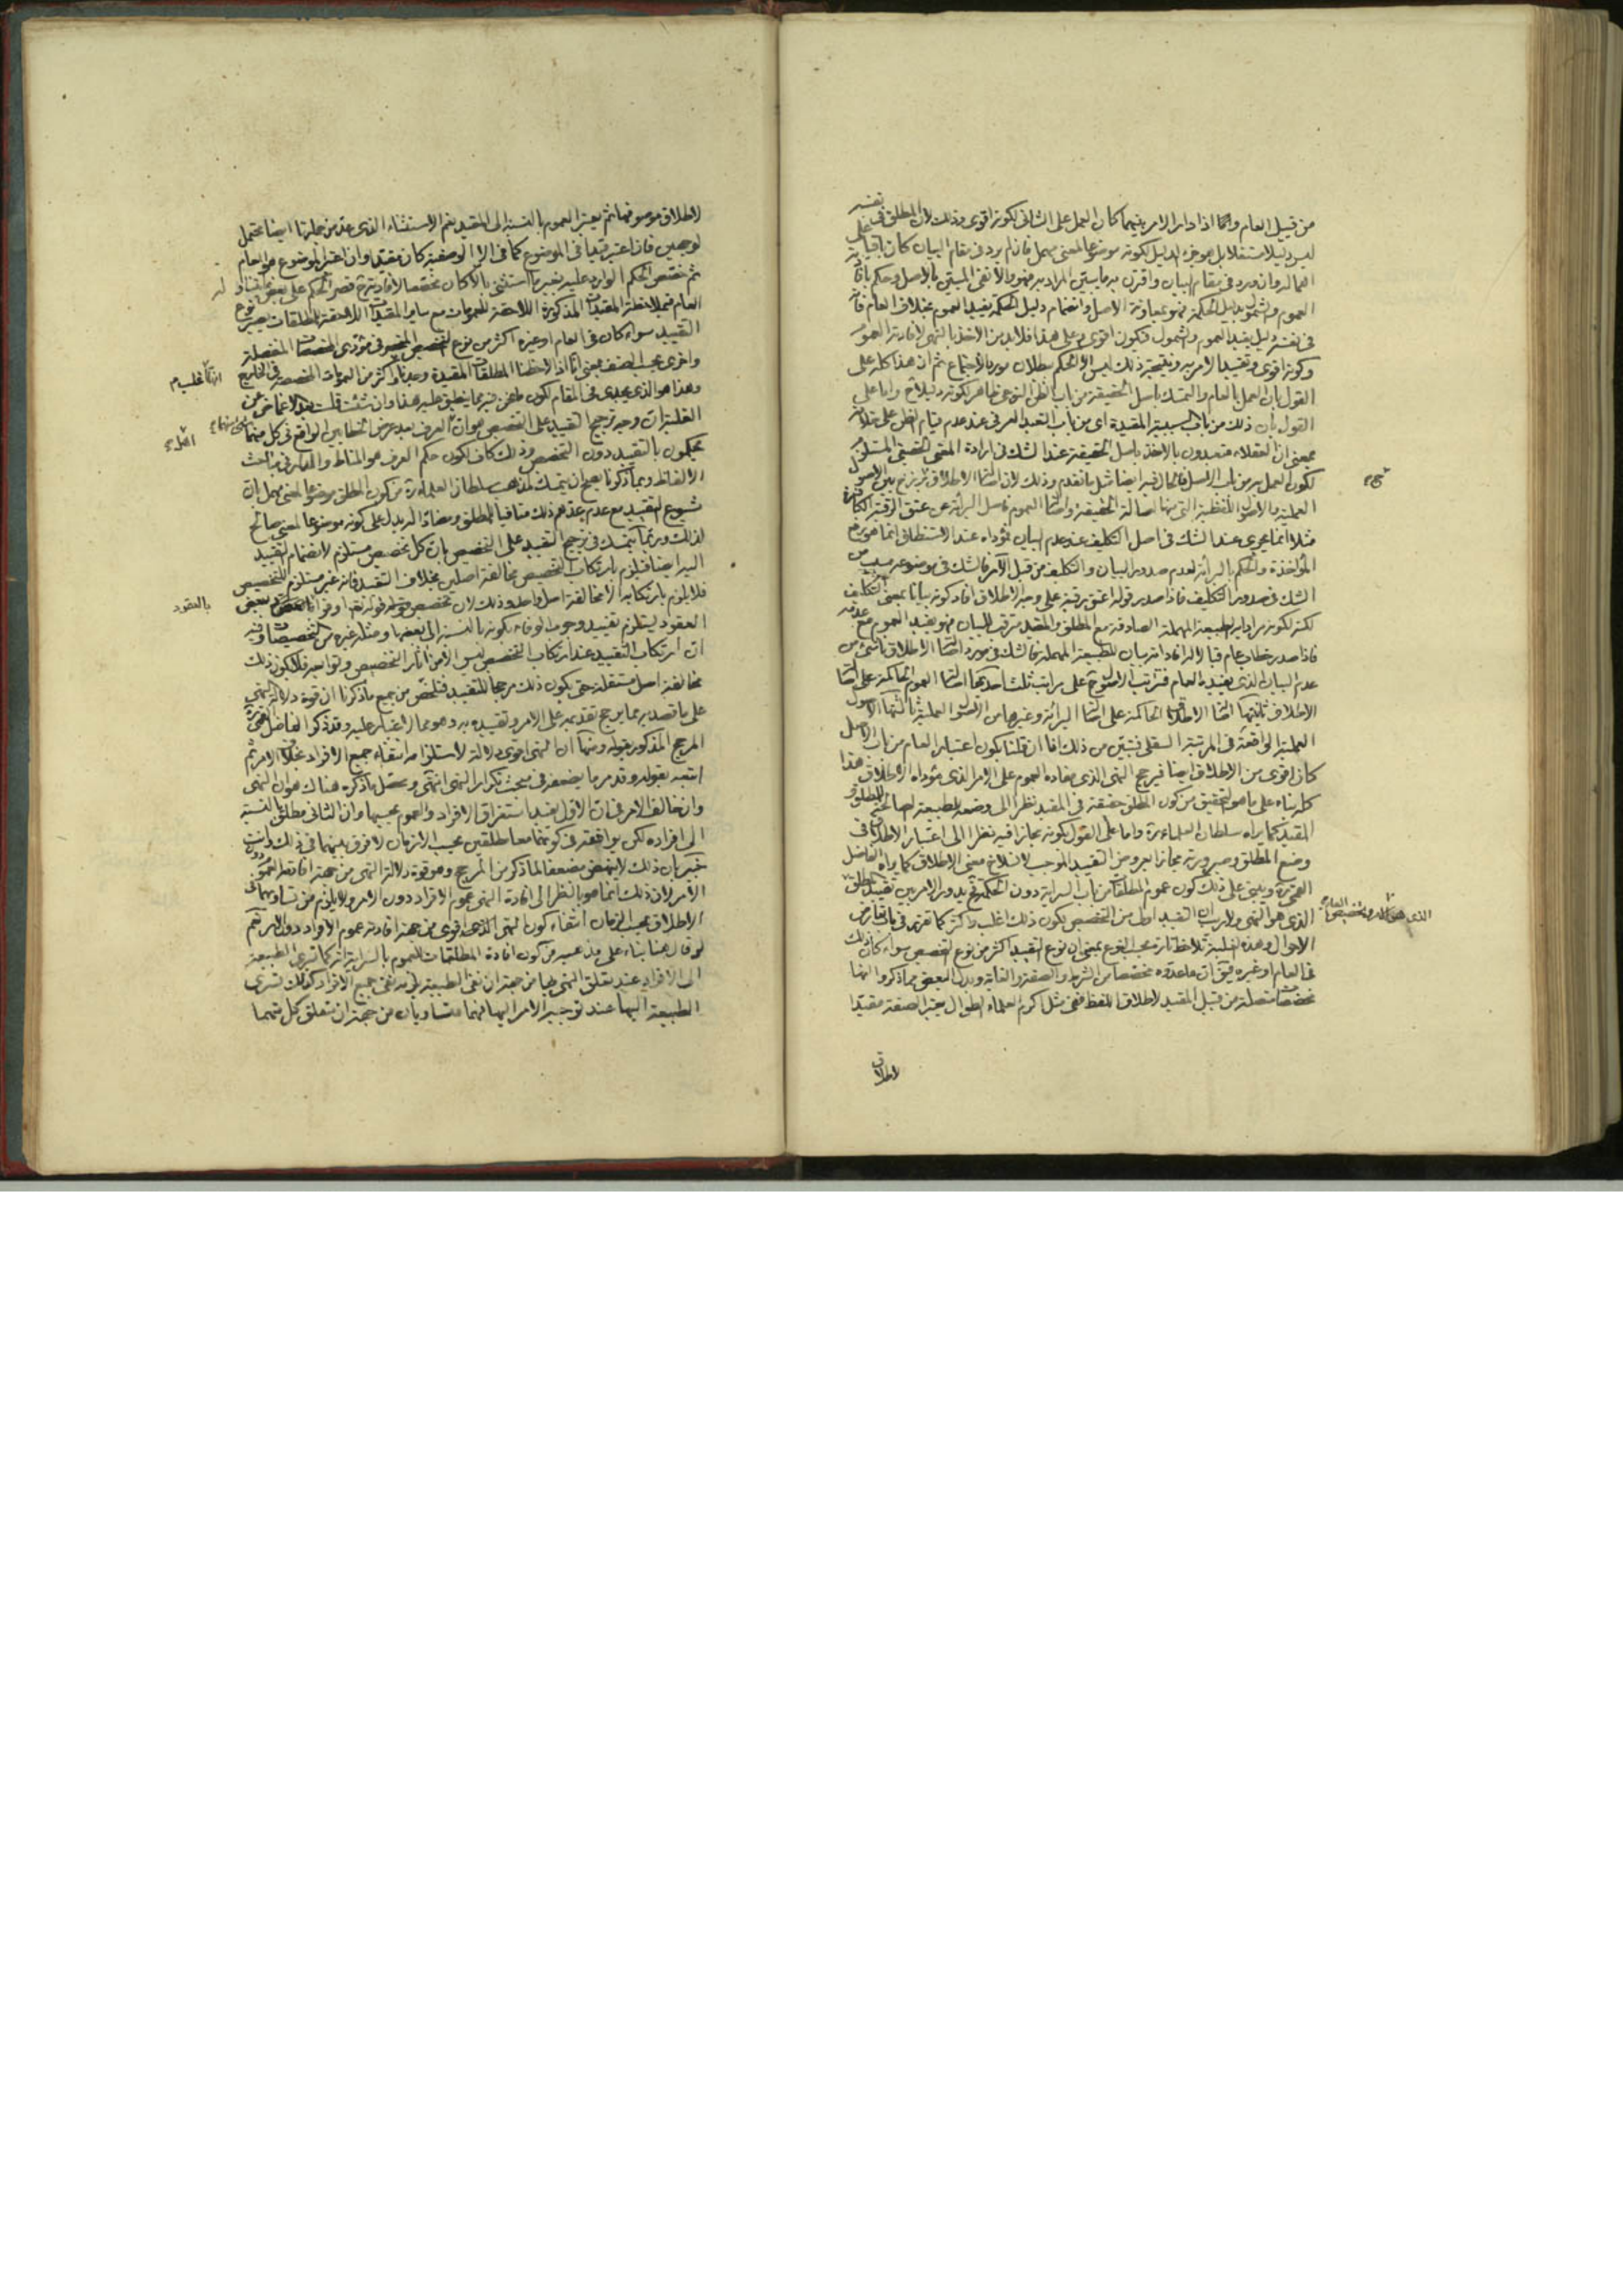 من قبيل العام واما اذا دار الامر بينهما كان العمل على الثانى لكونه اقوى وذلك لان المطلق فى نفسه
ليس دليلا مستقلا بل هو جزء الدليل لكونه موضوعا لمعنى مهمل فان لم يرد فى مقام البيان كان باقيا على
اهماله وان ورد فى مقام البيان واقترن به ما يبين المراد به فهو والا نفى المبين بالاصل وحكم بافادته
العموم والشمول بدليل الحكمة فهو بمعاونة الاصل وانضمام دليل الحكمة يفيد العموم بخلاف العام فانه
فى نفسه دليل يفيد العموم والشمول فيكون اقوى وعلى هذا فلابد من الاخذ بالنهى لافادته العموم
وكونه اقوى وتقييد الامر به ونتيجة ذلك ليس الا الحكم ببطلان مورد الاجتماع ثم ان هذا كله على
القول بان العمل بالعام والتمسك باصل الحقيقة من باب الظن النوعى ظاهر لكونه دليلا واما على
القول بان ذلك من باب السببية المقيدة اى من باب التعبد العرفى عند عدم قيام الظن على خلافه
بمعنى ان العقلاء متعبدون بالاخذ باصل الحقيقة عند الشك فى ارادة المعنى الحقيقى المستلزم
لكون العمل به من باب الاصل فالحال فيه ايضا مثل ما تقدم وذلك لان اصالة الاطلاق برزخ بين الاصول
العملية والاصول اللفظية التى منها اصالة الحقيقة واصالة العموم فاصل البرائة عن عتق الرقبة الكافرة
مثلا انما يجرى عند الشك فى اصل التكليف عند عدم البيان لمؤداه عند الاستطلاق انما هو رفع
المؤاخذة والحكم بالبرائة لعدم صدور البيان والتكليف من قبل الآمر فالشك فى موضوعه مسبب من
الشك فى صدور التكليف فاذا صدر قوله اعتق رقبة على وجه الاطلاق افاد كونه بيانا بمعنى التكليف
لكنه لكونه مرادا به الطبيعة المهملة الصادقة مع المطلق والمقيد مترقب للبيان فهو يفيد العموم مع عدمه
فاذا صدر خطاب عام قبالا له افاد انه بيان للطبيعة المهملة فالشك فى مورد اصالة الاطلاق ناشئ من
عدم البيان الذى يفيده العام فترتيب الاصول ح على مراتب ثلث احدها اصالة العموم الحاكمة على اصالة
الاطلاق ثانيتها اصالة الاطلاق الحاكمة على اصالة البرائة وغيرها من الاصول العملية ثالثتها الاصول
العملية الواقعة فى المرتبة السفلى فتبين من ذلك انا ان قلنا بكون اعتبار العام من باب الاصل
كان اقوى من الاطلاق ايضا فيرجح النهى الذى مفاده العموم على الامر الذى مؤداه الاطلاق هذا
كله بناء على ما هو التحقيق من كون المطلق حقيقة فى المقيد نظرا الى وضعه للطبيعة الصالحة للمطلق و
المقيد كما يراه سلطان العلماء ره واما على القول بكونه مجازا فيه نظرا الى اعتبار الاطلاق فى
وضع المطلق وصيرورته مجازا بعروض التقييد الموجب لانسلاخ معنى الاطلاق كما يراه الفاضل
القمى ره ويبنى على ذلك كون عموم المطلقات من باب السراية دون الحكمة ح يدور الامر بين تقييد المطلق
الذى هو النهى ولا ريب ان التقييد اولى من التخصيص لكون ذلك اغلب واكثر كما تقرر فى باب تعارض
الاحوال وهذه الغلبة تلاحظ تارة بحسب النوع بمعنى ان نوع التقييد اكثر من نوع التخصيص سواء كان ذلك
فى العام او غيره فيق ان ما عدوه مخصصا من الشرط والصفة والغاية وبدل البعض مما ذكروا انها
مخصصات متصلة من قبيل المقيد لاطلاق اللفظ ففى مثل اكرم العلماء الطوال يعتبر الصفة مقيدا
لاطلاق
لاطلاق موصوفها ثم يعتبر العموم بالنسبة الى المقيد نعم الاستثناء الذى عد من جملتها ايضا يحتمل
لوجهين فان اعتبر قيدا فى الموضوع كما فى الا الوصفية كان مقيدا وان اعتبر الموضوع هو العام
ثم خصص الحكم الوارد عليه بغير ما استثنى بالا كان مخصصا لافادته ح قصر الحكم على بعض افراد
العام فبملاحظة المقيدات المذكورة اللاحقة للعمومات مع ساير المقيدات اللاحقة بالمطلقات يصير نوع
التقييد سواء كان فى العام او غيره اكثر من نوع التخصيص المنحصر فى مؤدى المخصصات المنفصلة
واخرى بحسب الصنف بمعنى انا اذا لاحظنا المطلقات المقيدة وجدناها اكثر من العمومات المخصصة فى الخارج
وهذا هو الذى يجدى فى المقام لكون ما نحن فيه مما ينطبق عليه هذا وان شئت قلت مع الاغماض عن
الغلبة ان وجه ترجيح التقييد على التخصيص هو ان العرف بعد عرض الخطابين الواقع فى كل منهما
يحكمون بالتقييد دون التخصيص وذلك كاف لكون حكم العرف هو المناط والمدار فى مباحث
الالفاظ وبما ذكرنا يصح ان يتمسك لمذهب سلطان العلماء ره من كون المطلق موضوعا لمعنى مهمل بان
شيوع التقييد مع عدم عدهم ذلك منافيا للمطلق ومضادا له يدل على كونه موضوعا لمعنى صالح
لذلك وربما يتمسك فى ترجيح التقييد على التخصيص بان كل تخصيص مستلزم لانضمام التقييد
اليه ايضا فيلزم بارتكاب التخصيص مخالفة اصلين بخلاف التقييد فانه غير مستلزم للتخصيص
فلا يلزم بارتكابه الا مخالفة اصل واحد وذلك لان تخصيص قوله تعالى اوفوا بالعقود ببعض
العقود يستلزم تقييد وجوب الوفاء بكونه بالنسبة الى بعضها ومثله غيره من التخصيصات وفيه
ان ارتكاب التقييد عند ارتكاب التخصيص ليس الا من آثار التخصيص وتوابعه فلا يكون ذلك
مخالفة اصل مستقلة حتى يكون ذلك مرجحا للتقييد فتلخص من جميع ما ذكرنا ان قوة دلالة النهى
على ما قصد به مما يرجح تقديمه على الامر وتقييده به وهو مما لا غبار عليه وقد ذكر الفاضل القمى ره
المرجح المذكور بقوله ومنها ان النهى اقوى دلالة لاستلزامه انتفاء جميع الافراد بخلاف الامر ثم
اتبعه بقوله وقد مر ما يضعفه فى مبحث تكرار النهى انتهى ومحصل ما ذكره هناك هو ان النهى
وان خالف الامر فى ان الاول يفيد استغراق الافراد والعموم بحسبها وان الثانى مطلق بالنسبة
الى افراده لكن يوافقه فى كونهما معا مطلقين بحسب الازمان لا فرق بينهما فى ذلك وانت
خبير بان ذلك لا ينهض مضعفا لما ذكر من المرجح وهو قوة دلالة النهى من جهة افادته العموم دون
الامر لان ذلك انما هو بالنظر الى افادة النهى عموم الافراد دون الامر ولا يلزم من تساويهما فى
الاطلاق بحسب الزمان انتفاء كون النهى الذى هو اقوى من جهة افادته عموم الافراد دون الامر نعم
لو قال هنا بناء على مذهبه من كون افادة المطلقات للعموم بالسراية انه كما تسرى الطبيعة
الى الافراد عند تعلق النهى بها من جهة ان نفى الطبيعة يلزمه نفى جميع الافراد كذلك تسرى
الطبيعة اليها عند توجيه الامر اليها فهما متساويان من جهة ان تعلق كل منهما
بالعقود